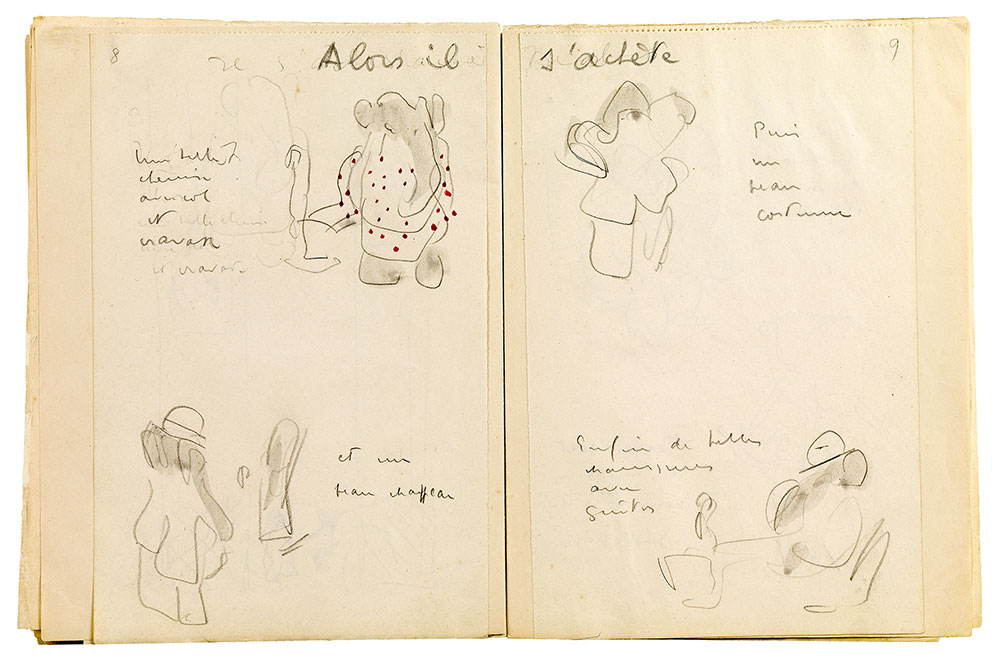 8
Alors il s'achète
9
chemise
avec col
et
cravate
et cravate
Puis
un
beau
costume
et un
beau chapeau
Enfin de belles
chaussures
avec
guêtres